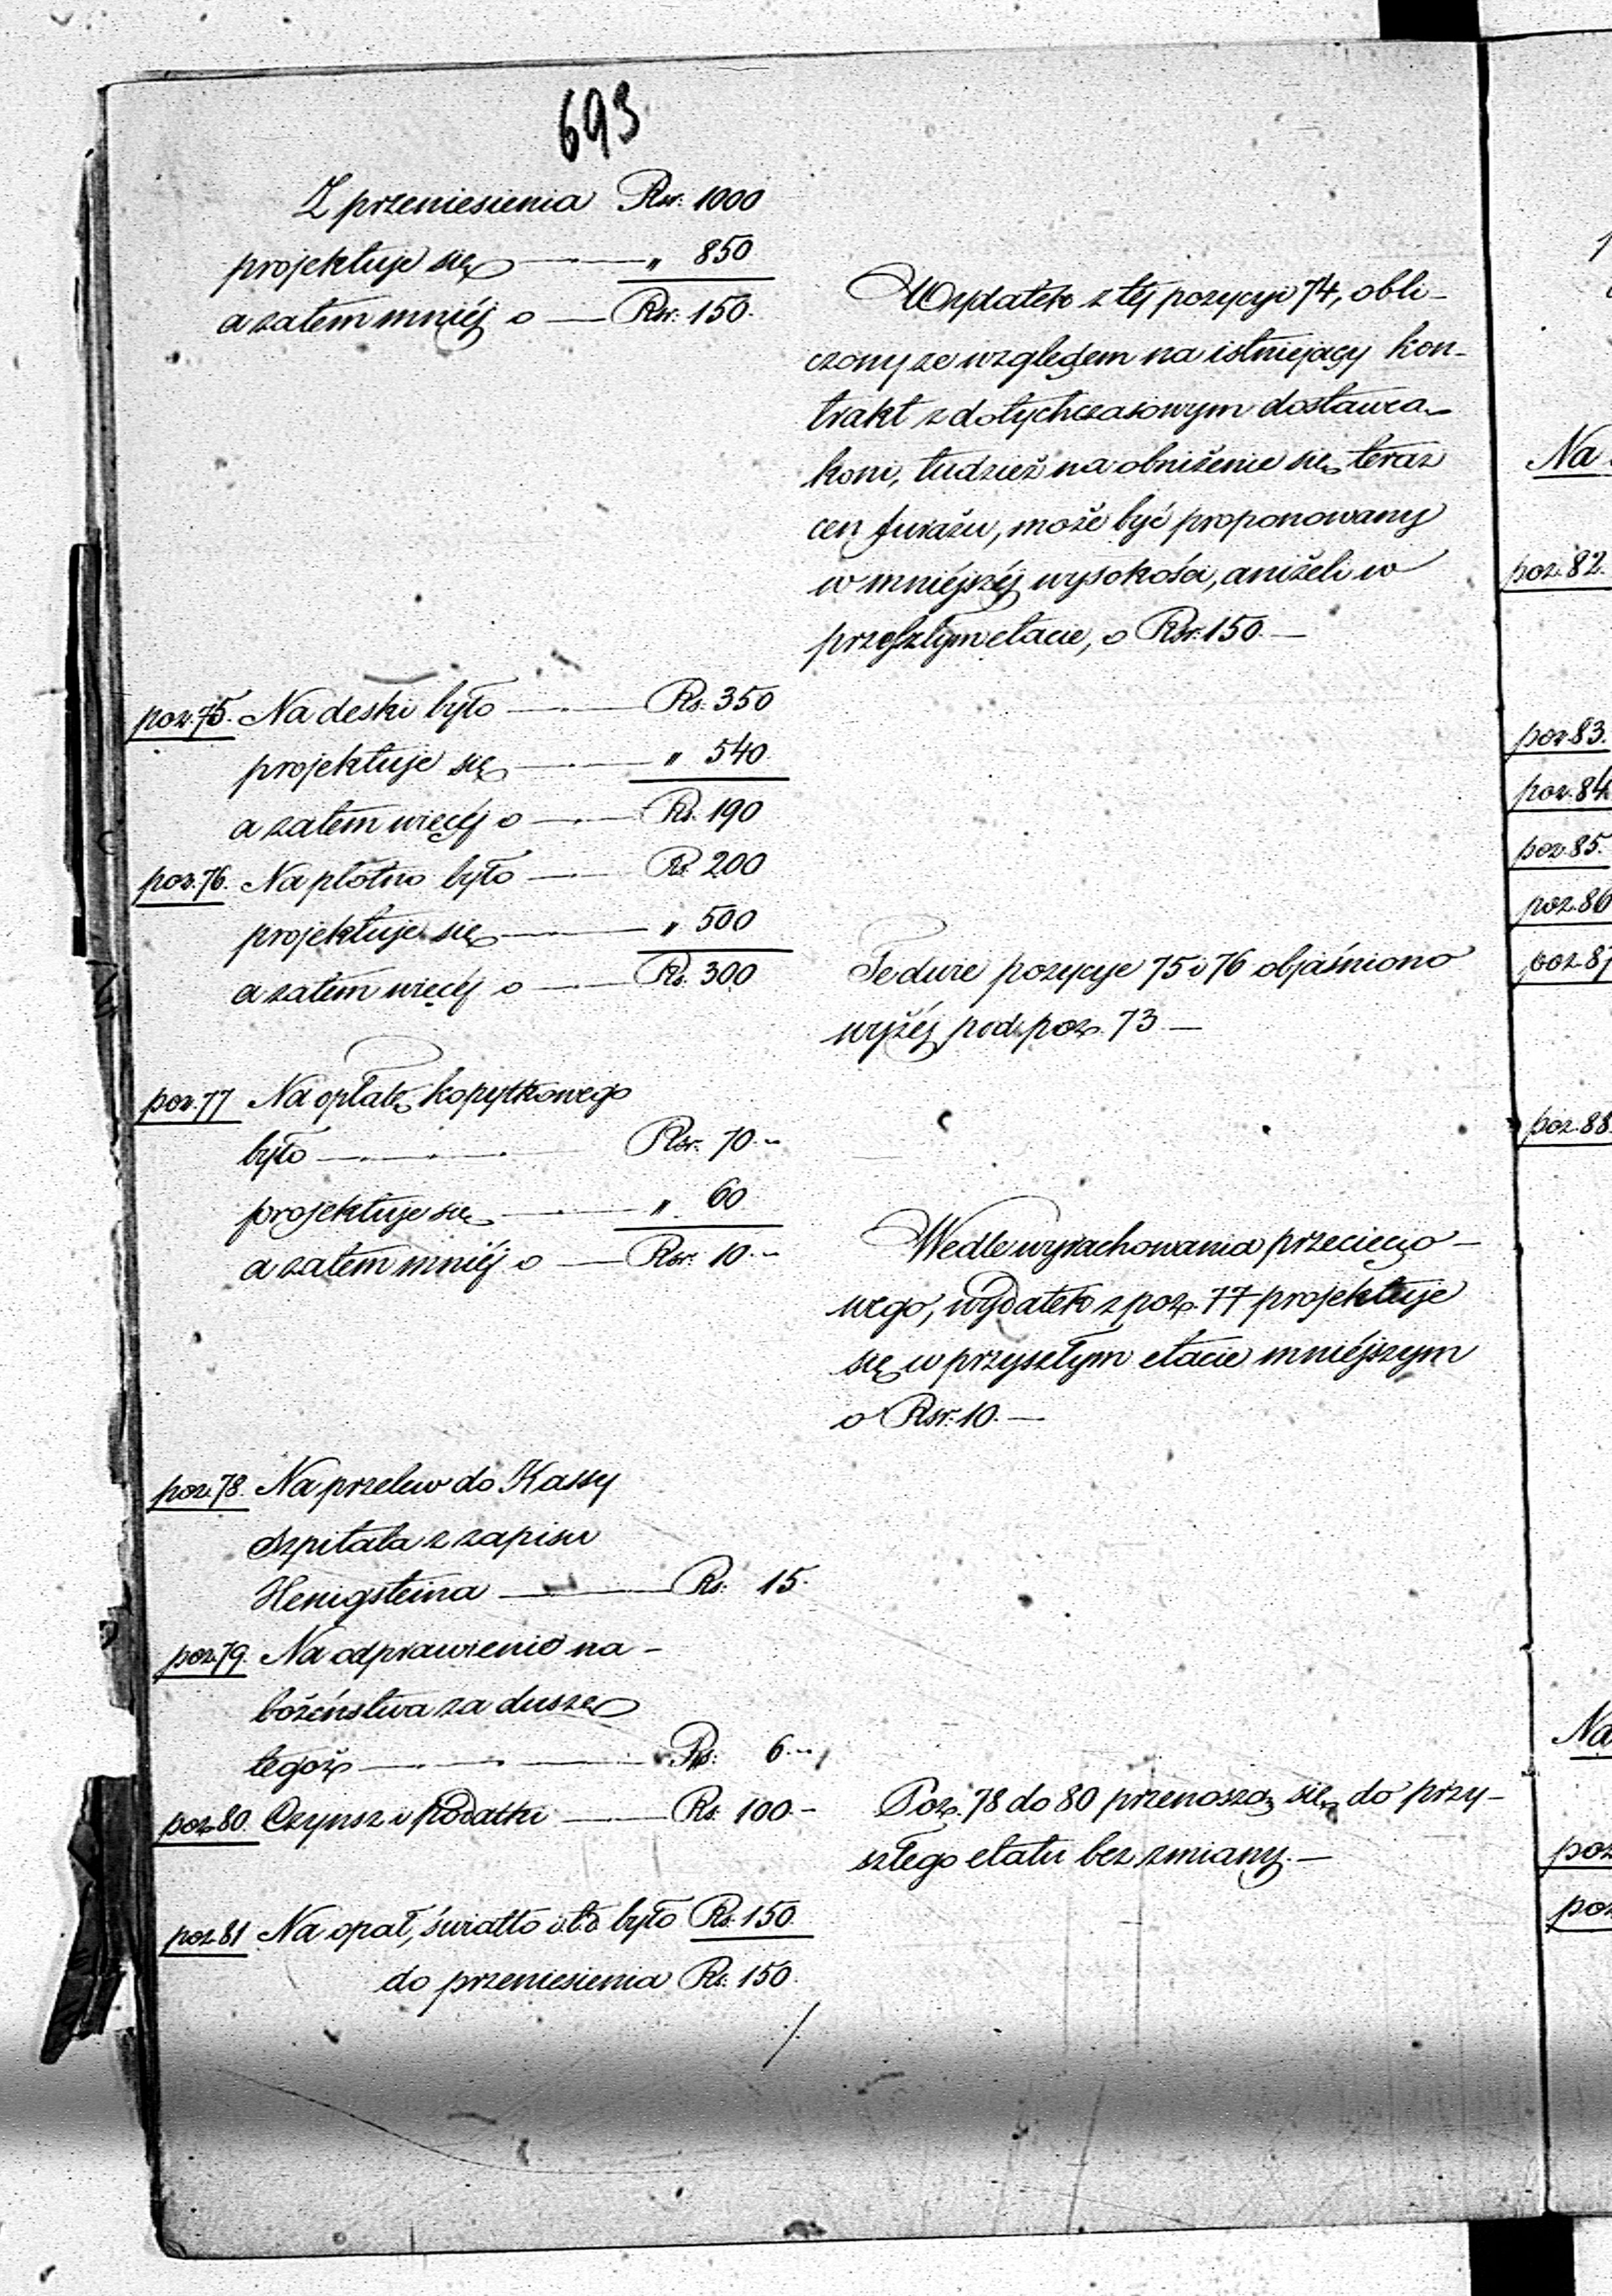 693
Z przeniesienia Rsr: 1000
projektuje się — „ 850
a zatem mniéj o — Rsr: 150.
Wydatek z téj pozycyi 74, obli-
czony ze względem na istniejący kon-
trakt z dotychczasowym dostawcą
koni, tudzież na obniżenie się teraz
cen furażu, może być proponowany
w mniéjszéj wysokości, aniżeli w
przeszłym etacie, o Rsr. 150. —
poz. 75. Na deski było — Rs. 350
projektuje się — „ 540.
a zatem więcéj o — Rs. 190
poz. 76. Na płótno było — Rs. 200
projektuje się — „ 500
a zatem więcéj o — Rs. 300
Te dwie pozycye 75 i 76 objaśniono
wyżéj pod poz. 73 —
poz. 77 Na opłatę kopytkowego
było — Rsr. 70. „
projektuje się — „ 60.
a zatem mniéj o — Rsr. 10. „
Wedle wyrachowania przecięcio-
wego, wydatek z poz. 77 projektuje
się w przyszłym etacie mniéjszym
o Rsr. 10. —
poz. 78. Na przelew do Kassy
Szpitala z zapisu
Henigsteina — Rs: 15.
poz. 79. Na odprawienie na-
bożeństwa za duszę
tegoż — Rs: 6. „
poz. 80. Czynsz i podatki — Rs. 100. —
Poz. 78 do 80 przenoszą się do przy-
szłego etatu bez zmiany. —
poz. 81 Na opał, światło i t.d. było Rs. 150.
do przeniesienia Rs. 150.
Na
poz. 82.
poz. 83.
poz. 84
poz. 85.
poz. 86
poz. 87
poz. 88.
Na
poz
poz